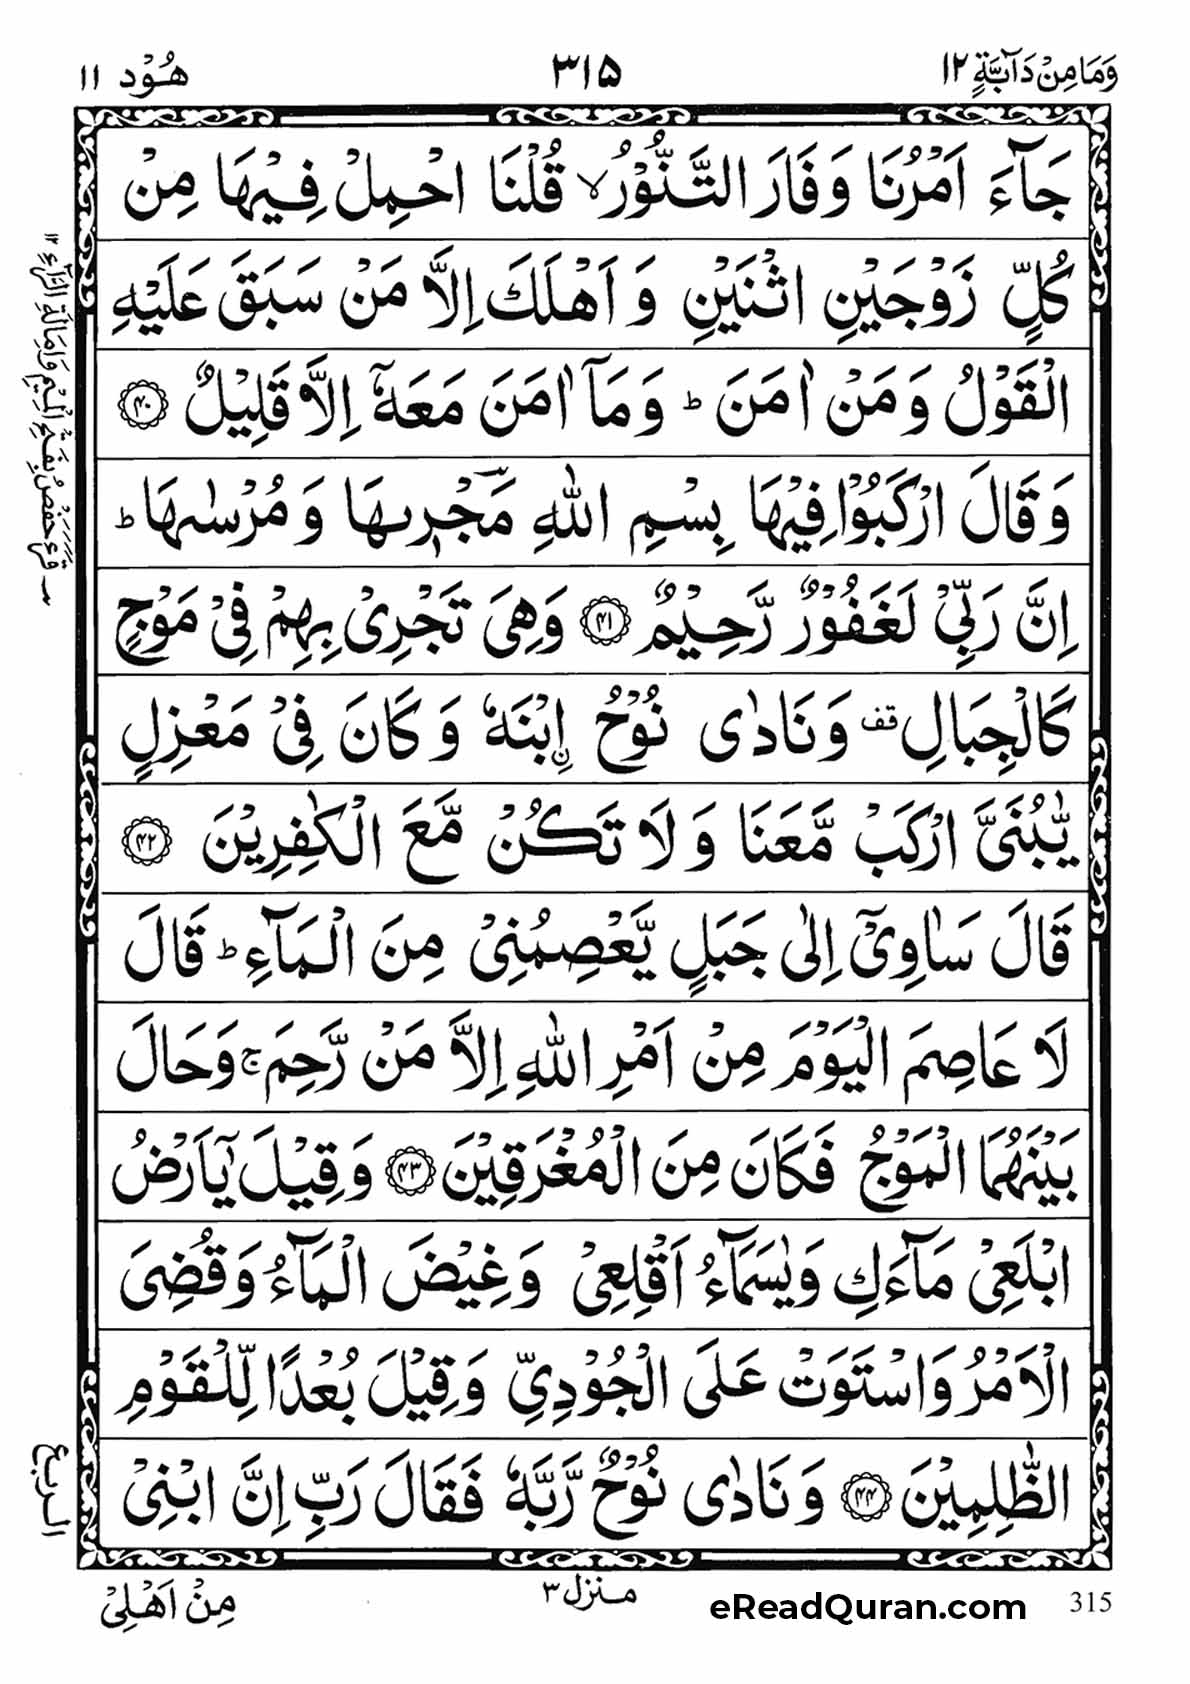 وَمَا مِنْ دَآبَّةٍ ١٢
٣١٥
هُوْد ١١
جَآءَ اَمْرُنَا وَفَارَ التَّنُّوْرُ ۙ قُلْنَا احْمِلْ فِيْهَا مِنْ
كُلٍّ زَوْجَيْنِ اثْنَيْنِ وَ اَهْلَكَ اِلَّا مَنْ سَبَقَ عَلَيْهِ
الْقَوْلُ وَ مَنْ اٰمَنَ ؕ وَ مَاۤ اٰمَنَ مَعَهٗۤ اِلَّا قَلِيْلٌ ۴۰
وَ قَالَ ارْكَبُوْا فِيْهَا بِسْمِ اللّٰهِ مَجْؔرٖىهَا وَ مُرْسٰىهَا ؕ
اِنَّ رَبِّيْ لَغَفُوْرٌ رَّحِيْمٌ ۴۱ وَهِيَ تَجْرِيْ بِهِمْ فِيْ مَوْجٍ
كَالْجِبَالِ ۫ قف وَ نَادٰى نُوْحُ اِۨبْنَهٗ وَ كَانَ فِيْ مَعْزِلٍ
يّٰبُنَيَّ ارْكَبْ مَّعَنَا وَ لَا تَكُنْ مَّعَ الْكٰفِرِيْنَ ۴۲
قَالَ سَاٰوِيْۤ اِلٰى جَبَلٍ يَّعْصِمُنِيْ مِنَ الْمَآءِ ؕ قَالَ
لَا عَاصِمَ الْيَوْمَ مِنْ اَمْرِ اللّٰهِ اِلَّا مَنْ رَّحِمَ ۚ وَحَالَ
بَيْنَهُمَا الْمَوْجُ فَكَانَ مِنَ الْمُغْرَقِيْنَ ۴۳ وَ قِيْلَ يٰۤاَرْضُ
ابْلَعِيْ مَآءَكِ وَيٰسَمَآءُ اَقْلِعِيْ وَغِيْضَ الْمَآءُ وَقُضِيَ
الْاَمْرُ وَاسْتَوَتْ عَلَى الْجُوْدِيِّ وَقِيْلَ بُعْدًا لِّلْقَوْمِ
الظّٰلِمِيْنَ ۴۴ وَ نَادٰى نُوْحٌ رَّبَّهٗ فَقَالَ رَبِّ اِنَّ ابْنِيْ
قرء حفص بفتح الميم وامالة الراء ١٢
الربع
مِنْ اَهْلِيْ
منزل ٣
eReadQuran.com
315